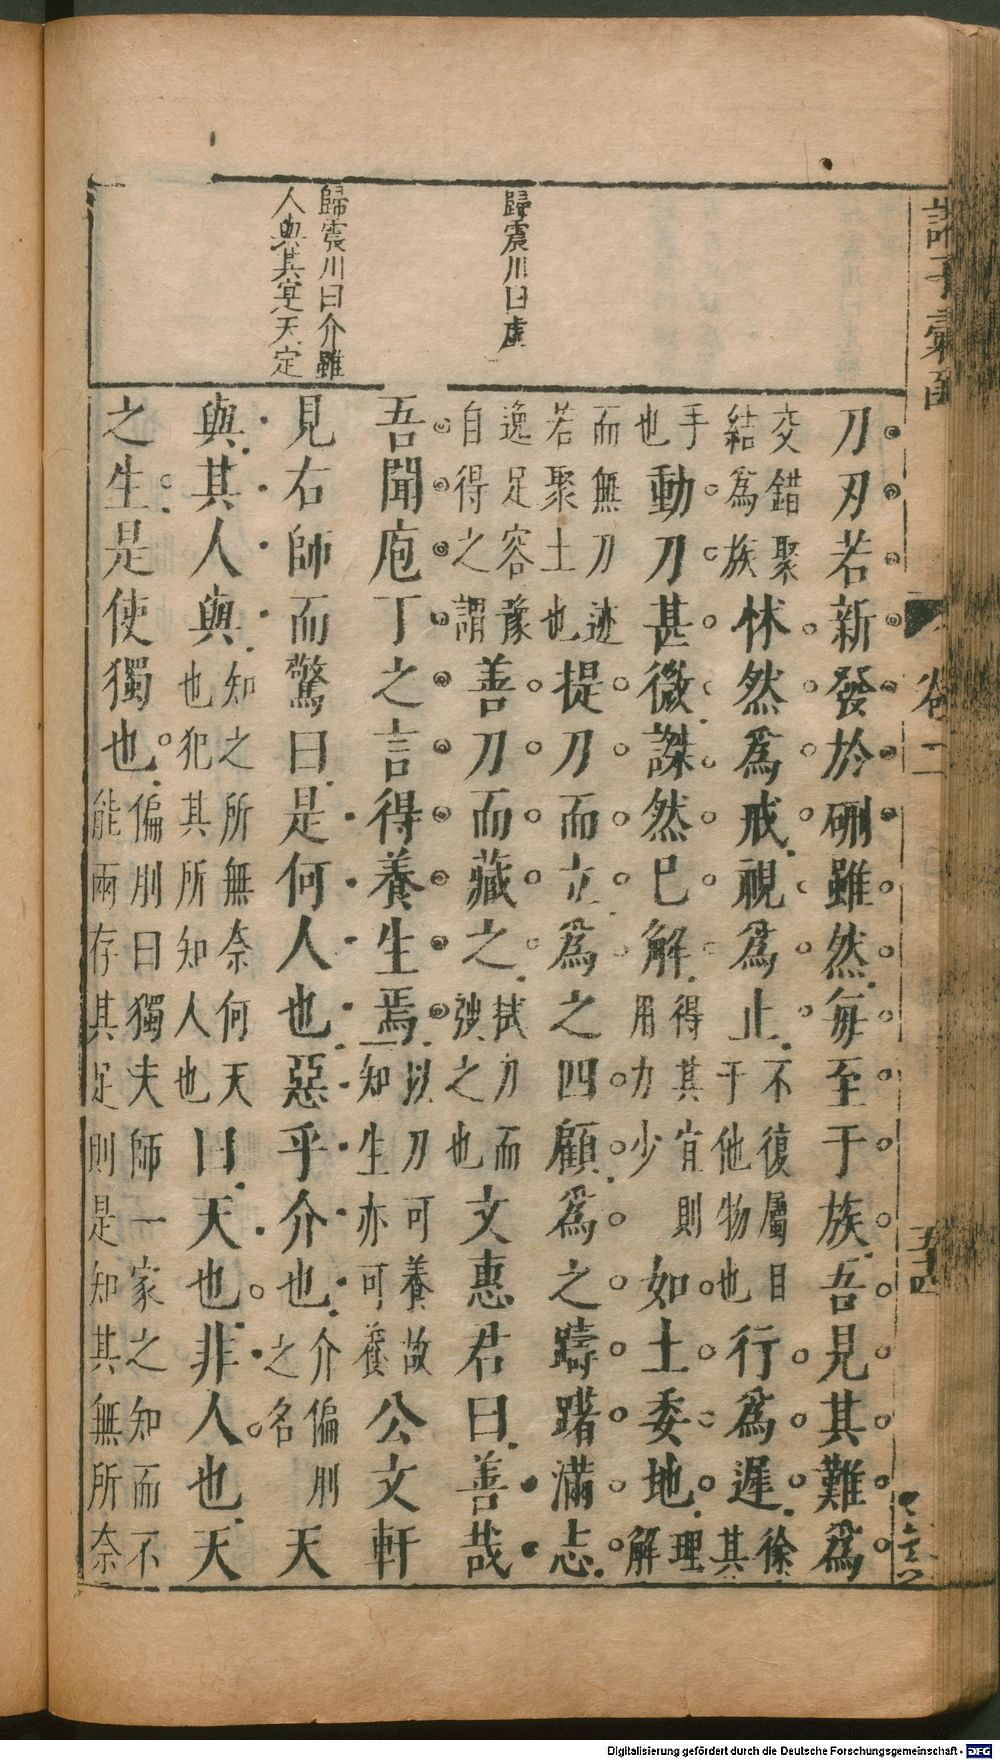 諸子彙函
卷二
五十四
歸震川曰虛
歸震川曰介雖
人與其寔天定
刀刃若新發於硎雖然每至于族吾見其難爲
交錯聚結爲族怵然爲戒視爲止不復屬目于他物也行爲遲徐其
手也動刀甚微謋然已解得其宜則用力少如土委地理解
而無刀迹若聚土也提刀而立爲之四顧爲之躊躇滿志
逸足容豫自得之謂善刀而藏之拭刀而弢之也文惠君曰善哉
吾聞庖丁之言得養生焉以刀可養故知生亦可養公文軒
見右師而驚曰是何人也惡乎介也介偏刖之名天
與其人與知之所無奈何天也犯其所知人也曰天也非人也天
之生是使獨也偏刖曰獨夫師一家之知而不能兩存其足則是知其無所奈
Digitalisierung gefördert durch die Deutsche Forschungsgemeinschaft - DFG